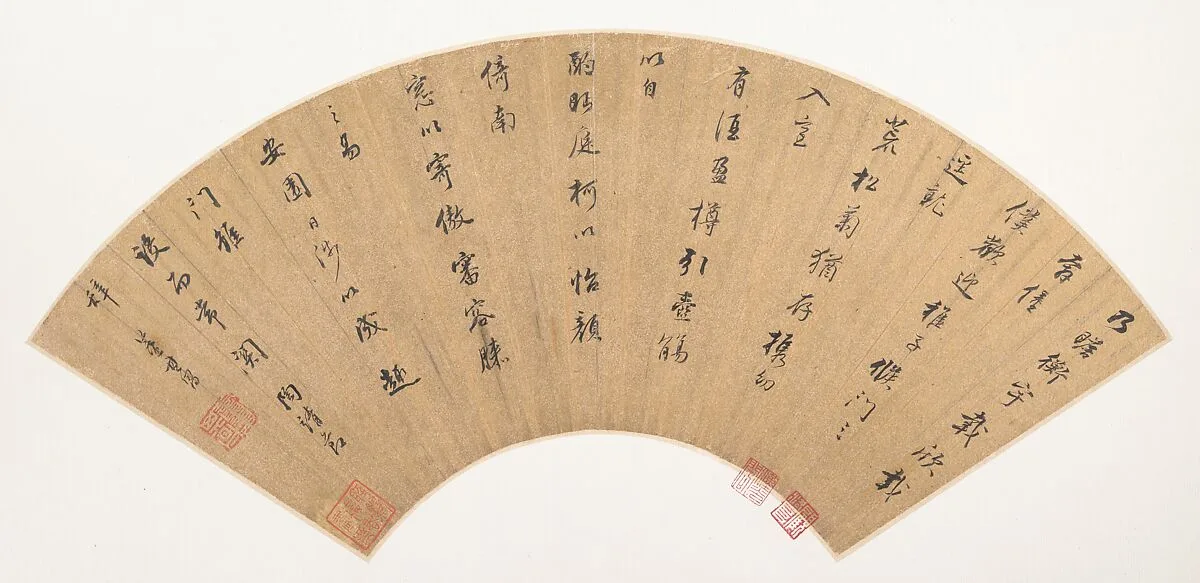 乃瞻衡宇載欣載
奔僮
僕歡迎稚子候門三
逕就
荒松菊猶存携幼
入室
有酒盈樽引壺觴
以自
酌眄庭柯以怡顏
倚南
窓以寄傲審容膝
之易
安園日涉以成趣
門雖
設而常關陶靖節
辭
董其昌